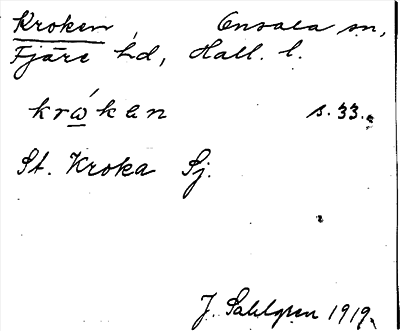 Kroken, Onsala sn,
Fjäre hd, Hall. l.
krὼkən s. 33.
St. Kroka Sj.
J. Sahlgren 1919.